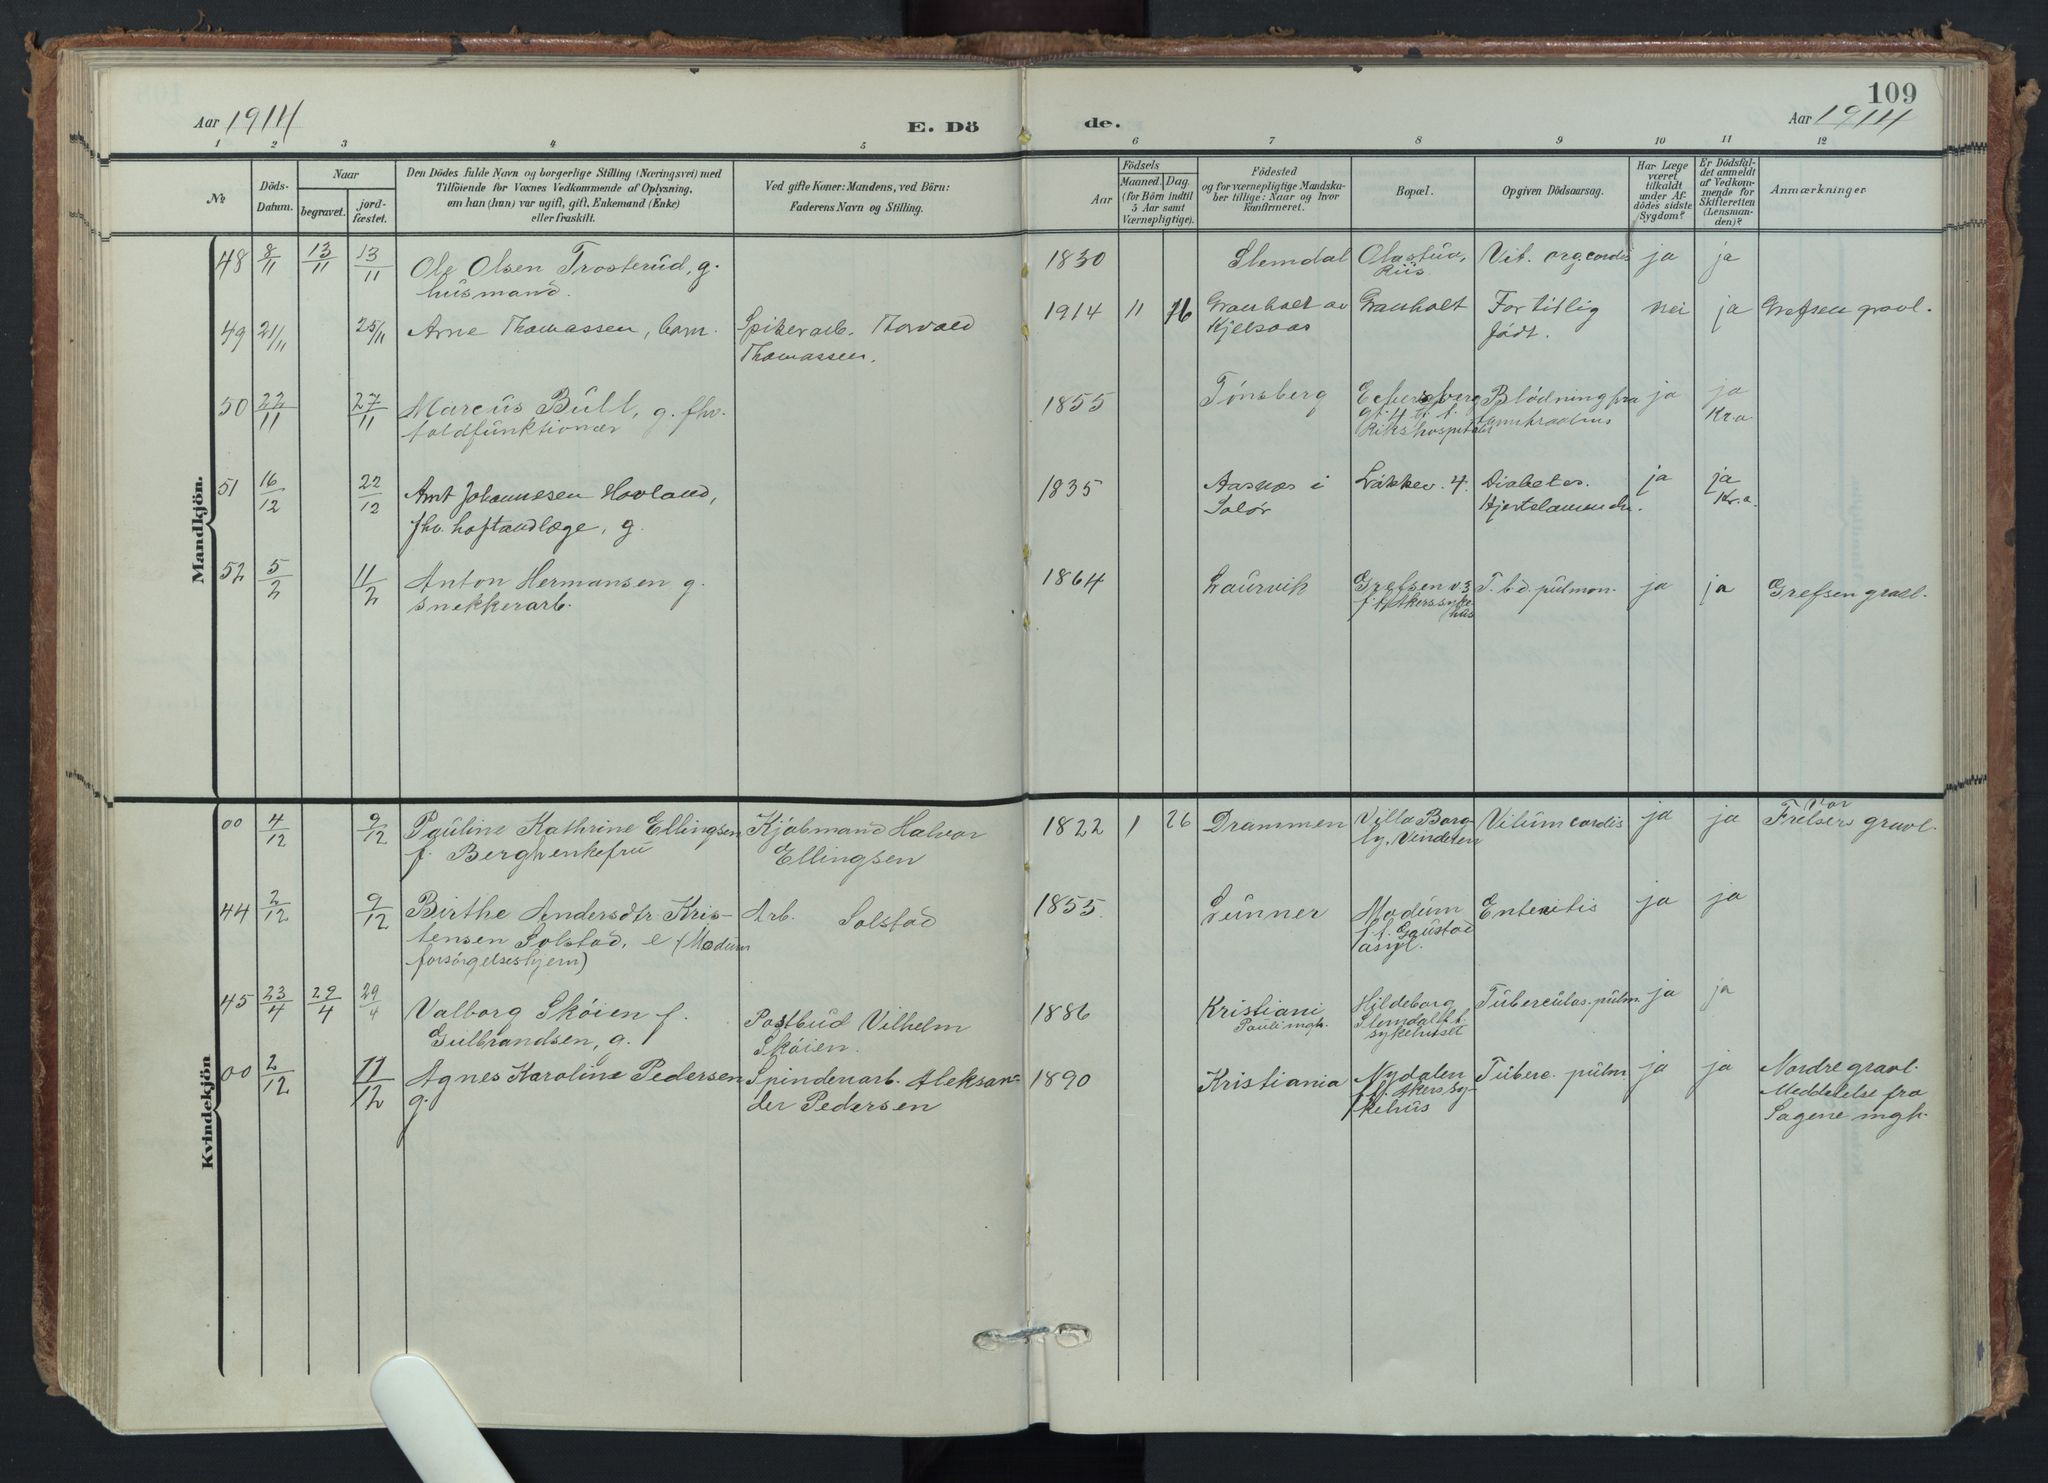 109
Aar 1914
E. Dö
de.
Aar 1914
1 2 3 4 5 6 7 8 9 10 11 12
№
Döds-
Datum.
Naar
begravet.
jord-
fæstet.
Den Dödes fulde Navn og borgerlige Stilling (Næringsvei) med
Tilföiende for Voxnes Vedkommende af Oplysning,
om han (hun) var ugift, gift, Enkemand (Enke)
eller fraskilt.
Ved gifte Koner: Mandens, ved Börn:
Faderens Navn og Stilling.
Födsels
Aar
Maaned. Dag.
(for Börn indtil
5 Aar samt
Værnepligtige).
Födested
og for værnepligtige Mandska-
ber tillige: Naar og hvor
konfirmeret.
Bopæl.
Opgiven Dödsaarsag.
Har Læge
været
tilkaldt
under Af-
dödes sidste
Sygdom?
Er Dödsfal-
det anmeldt
af Vedkom-
mende for
Skifteretten
(Lensman-
den)?
Anmærkninger
Mandkjön.
48 8/11 13/11 13/11 Ole Olsen Trosterud, g. 1830 Slemdal Olastua, Vit. org. cordis ja ja
husmand. Riis
49 21/11 25/11 Arne Thomassen, barn. Spikerarb. Thorvald 1914 11 16 Granholt av Granholt For tidlig nei ja Grefsen gravl.
Thomassen. Kjelsaas født.
50 22/11 27/11 Marcus Bull, g. fhv. 1855 Tønsberg Eckersberg Blødning fra ja ja
toldfunktionær gt. 4 Kr.a
Rikshospitalet
51 16/12 22/12 Arnt Johannesen Hovland, 1835 Aasnes i Løkkev. 4. Diabetes. ja ja
fhv. hoftandlæge, g. Solør Kr.a.
52 5/2 11/2 Anton Hermansen g. 1864 Laurvik Grefsen v. 3 T.b.d. pulmon. ja ja Grefsen gravl.
snekkerarb. f. t. Akers syke-
hus
Kvindekjön
00 4/12 9/12 Pauline Kathrine Ellingsen Kjøbmand Halvor 1822 1 26 Drammen Villa Borg- Vitium cordis ja ja Vor
Frelsers gravl.
f. Bergh enkefru Ellingsen ly. Vinderen
44 2/12 9/12 Birthe Andersdtr. Kris- Arb. Solstad 1855. Lunner Modum Enteritis ja ja
tensen Solstad, e (Modum f. t. Gaustad
forsørgelseshjem) asyl.
45 23/4 29/4 29/4 Valborg Skøien f. Postbud Vilhelm 1886 Kristiani Hildeborg Tuberculos. pulm. ja ja
Gulbrandsen, g. Skøien. Pauli mgh. Slemdal f. t.
sykehuset
00 2/12 11/12 Agnes Karoline Pedersen Spinderiarb. Aleksan- 1890 Kristiania Nydalen Tuberc. pulm ja ja Nordre gravl.
g. der Pedersen f. t. Akers sy- Meddelelse fra
kehus Sagene mgh.